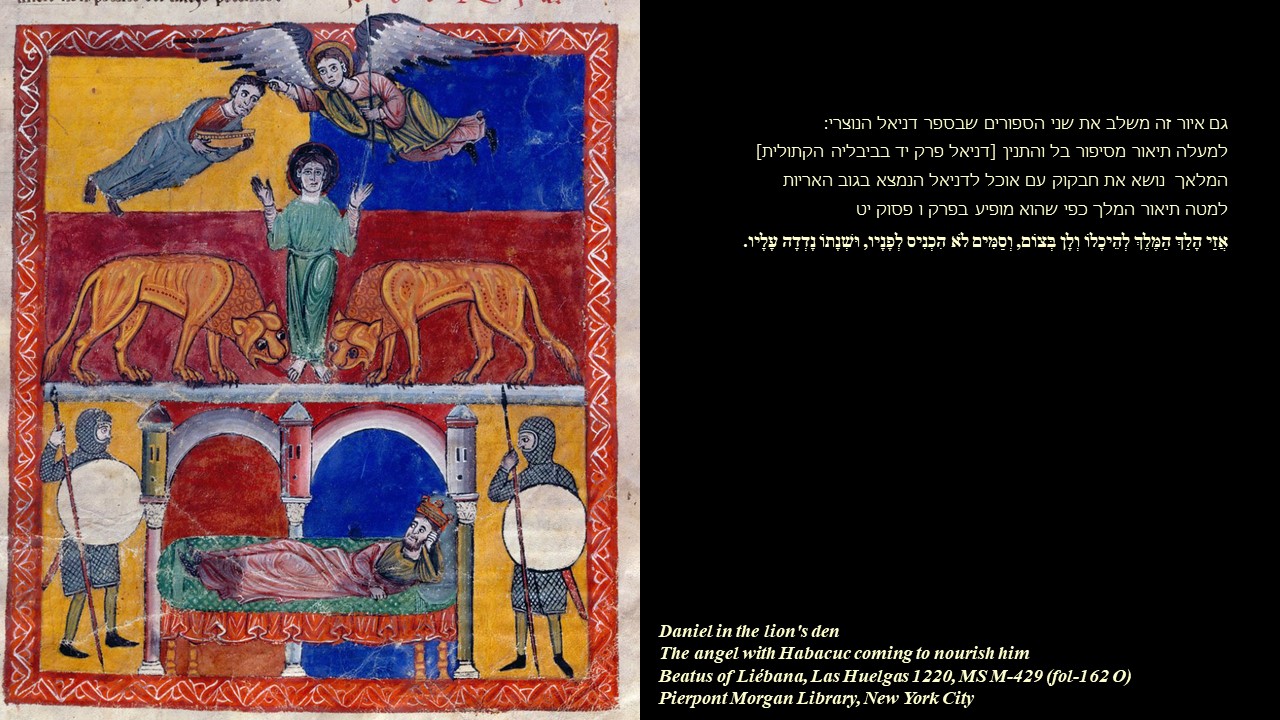 גם איור זה משלב את שני הספורים שבספר דניאל הנוצרי:
למעלה תיאור מסיפור בל והתנין [דניאל פרק יד בביבליה הקתולית]
המלאך נושא את חבקוק עם אוכל לדניאל הנמצא בגוב האריות
למטה תיאור המלך כפי שהוא מופיע בפרק ו פסוק יט
אֲזַי הָלַךְ הַמֶּלֶךְ לְהֵיכָלוֹ וְלָן בְּצוֹם, וְסַמִּים לֹא הִכְנִיס לְפָנָיו, וּשְׁנָתוֹ נָדְדָה עָלָיו.
Daniel in the lion's den
The angel with Habacuc coming to nourish him
Beatus of Liébana, Las Huelgas 1220, MS M-429 (fol-162 O)
Pierpont Morgan Library, New York City